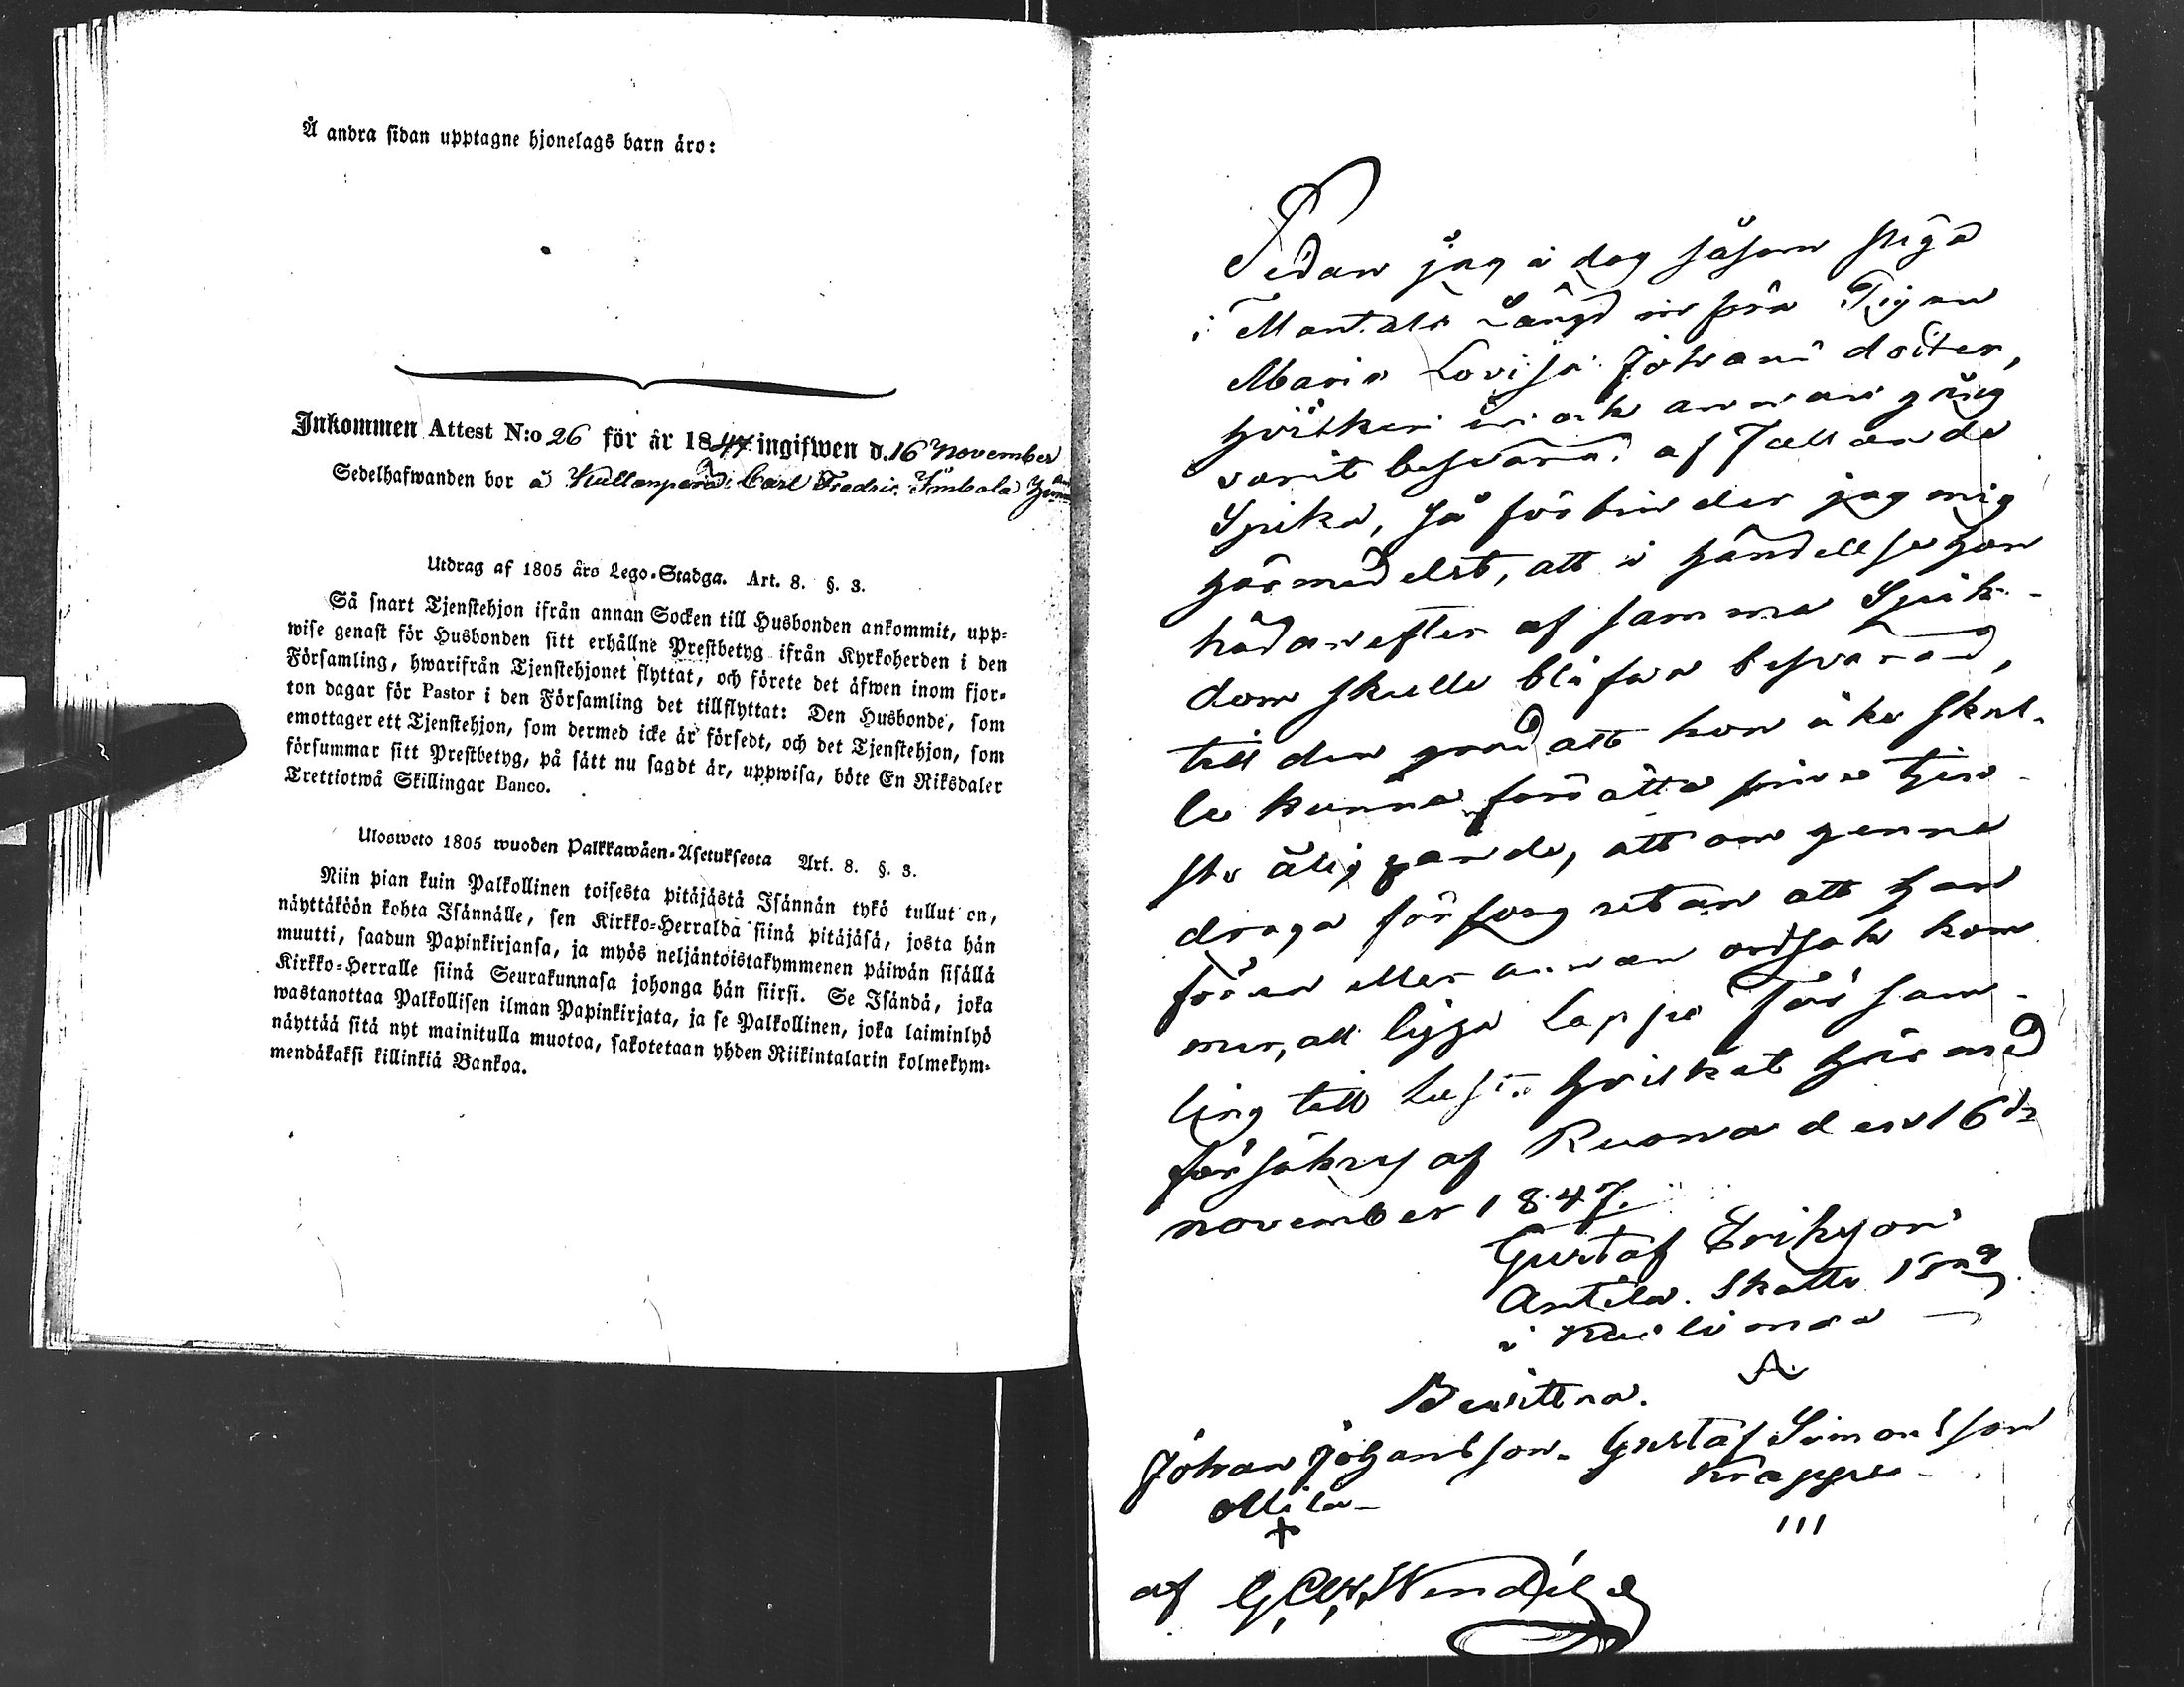 Å andra sidan upptagne hjonelags barn äro:
Inkommen Attest N:o 26 för år 1847 ingifwen d. 16 November
Sedelhafwanden bor å Kullanperä Carl Fredric Imbola
Utdrag af 1805 års Lego-Stadga. Art. 8. §. 3.
Så snart Tjenstehjon ifrån annan Socken till Husbonden ankommit, upp-
wise genast för Husbonden sitt erhållne Prestbetyg ifrån Kyrkoherden i den
Församling, hwarifrån Tjenstehjonet flyttat, och förete det äfwen inom fjor-
ton dagar för Pastor i den Församling det tillflyttat: Den Husbonde, som
emottager ett Tjenstehjon, som dermed icke är försedt, och det Tjenstehjon, som
försummar sitt Prestbetyg, på sätt nu sagdt är, uppwisa, böte En Riksdaler
Trettiotwå Skillingar Banco.
Ulosweto 1805 wuoden Palkkawäen-Asetuksesta Art. 8. §. 3.
Niin pian kuin Palkollinen toisesta pitäjästä Isännän tykö tullut on,
näyttäköön kohta Isännälle, sen Kirkko-Herralda siinä pitäjäsä, josta hän
muutti, saadun Papinkirjansa, ja myös neljäntoistakymmenen päiwän sisällä
Kirkko-Herralle siinä Seurakunnasa johonga hän siirsi. Se Isändä, joka
wastanottaa Palkollisen ilman Papinkirjata, ja se Palkollinen, joka laiminlyö
näyttää sitä nyt mainitulla muotoa, sakotetaan yhden Riikintalarin kolmekym-
mendäkaksi killinkiä Bankoa.
Sedan jag i dag såsom piga
i Mantals Längd Pigan
Maria Lovisa Johans doter,
hvilken
varit besvärad af Fallande
Sjuka, så förbinder jag mig
härmedelst, att i händellse hon
hädanefter af samma Sjuk-
dom skulle blifva besvärad,
till den grad att hon icke skul-
le kunna sina tjen-
ste åligande, att om henne
draga försorg utan att hon
för en eller annan ordsak kom
mer, att ligga Lappo Försam-
ling till last hvilket härmed
försäkras af Ruona den 16de
november 1847.
Gustaf Erikson
Antila. Skatte
i
Bewittna.
Johan Johansson. Gustaf Simonsson
Ollila Krappe
+ III
af